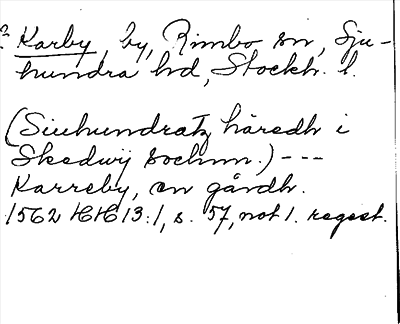 ? Karby, by, Rimbo sn, Sju-
hundra hd, Stockh. l.
(Siuhundratz häredh i
Skedwij sochnn.) - - -
Karreby, en gårdh.
1562 HH 13:1, s. 57, not 1. regest.